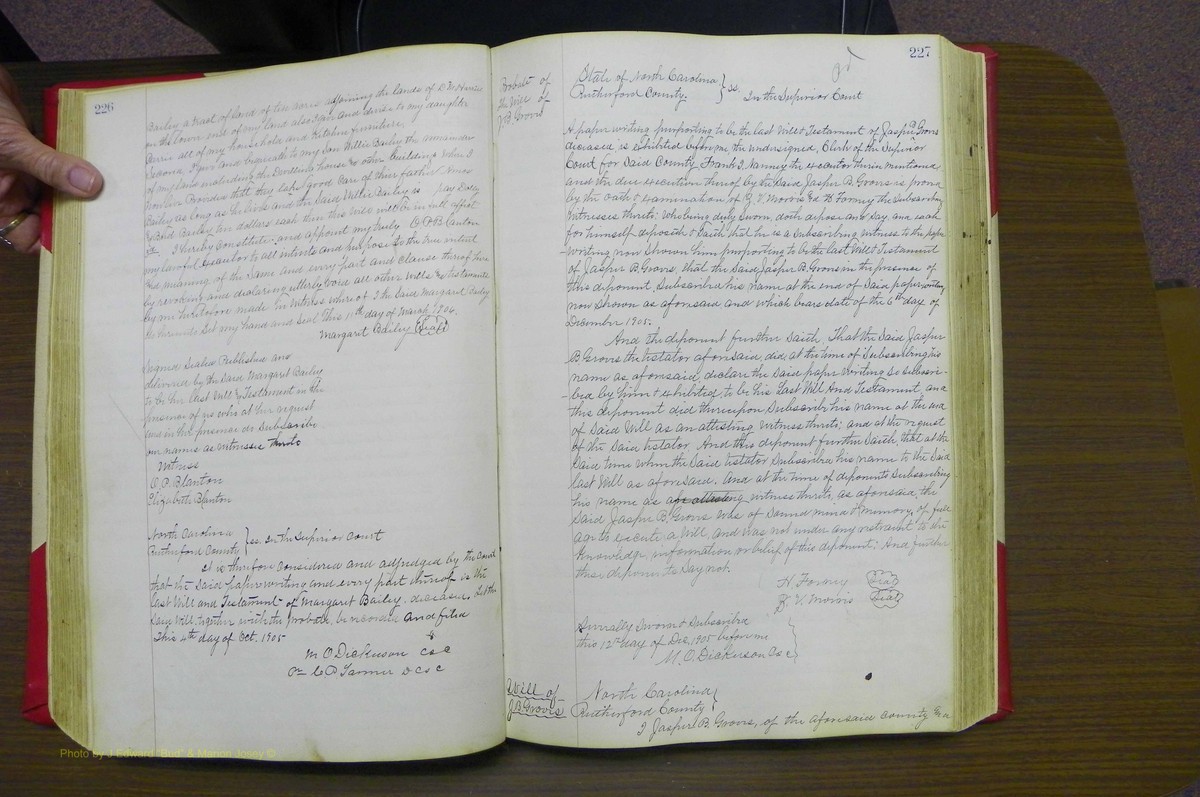 226
Bailey a tract of land of this same adjoining the lands of D. F.
on the lower end of my land also I give and devise to my daughter
all of my house hold and Kitchen furniture.
Second, I give and bequeath to my Son Willie Bailey the remainder
of my land including the Dwelling house & other buildings when I
good care of their father
Bailey as long as he lives and the Said Willie Bailey is pay
Bailey ten dollars each then this will will be in full effect
I hereby Constitute and appoint my trusty O. P. Blanton
my lawful Executor to all intents and purposes to the true intent
and meaning of the Same and every part and clause thereof hereby
by revoking and declaring utterly void all other wills & testaments
by me heretofore made. In witness whereof I the Said Margaret Bailey
do hereunto Set my hand and Seal this 11th day of March 1904.
Margaret Bailey (Seal)
Signed Sealed Published and
delivered by the Said Margaret Bailey
to be her last Will & Testament in the
presence of us who at her request
and in her presence do Subscribe
our names as witnesses thereto
Witness
O. P. Blanton
Elizabeth Blanton
North Carolina
Rutherford County } SS. In the Superior Court
It is therefore Considered and adjudged by the Court
that the Said paper writing and every part thereof is the
Last Will and Testament of Margaret Bailey, deceased. Let the
Said Will, together with the probate, be recorded and filed
This 4th day of Oct. 1905
M. O. Dickerson C S C
D C S C
227
Probate of
the Will of
J. B. Groves
State of North Carolina
Rutherford County. } SS. In the Superior Court
A paper writing purporting to be the last Will & Testament of Jasper B. Grovs
deceased is exhibited before me the undersigned, Clerk of the Superior
Court for Said County, Frank I. Nanney the executor therein mentioned
and the due execution thereof by the Said Jasper B. Grovs is proved
by the oath & examination of Z. V. Morris and H. Forney the Subscribing
Witnesses thereto: Who being duly Sworn, doth depose and Say, and each
for himself deposeth & Saith that he is a Subscribing witness to the paper
writing now Shown him purporting to be the last Will & Testament
of Jasper B. Grovs, that the Said Jasper B. Grovs in the presence of
this deponent, Subscribed his name at the end of Said paper writing
now Shown as aforesaid, and which bears date of the 6th day of
December 1905.
And the deponent further Saith, That the Said Jasper
B. Grovs the testator aforesaid, did, at the time of Subscribing his
name as aforesaid, declare the Said paper Writing So Subscri-
bed by him & exhibited to be his Last Will And Testament, and
this deponent did thereupon Subscribe his name at the end
of Said Will as an attesting witness thereto; and at the request
of the Said testator. And this deponent further Saith, that at the
Said time when the Said testator Subscribed his name to the Said
last Will as aforesaid. And at the time of deponents Subscribing
his name as an attesting witness thereto, as aforesaid, the
Said Jasper B. Grovs was of Sound mind & memory, of full
age to execute a Will, and was not under any restraint to the
knowledge, information or belief of this deponent; And further
these deponents Say not.
H. Forney (Seal)
Z. V. Morris (Seal)
Severally Sworn & Subscribed
this 12th day of Dec, 1905 before me
M. O. Dickerson C S C
Will of
J. B. Groves
North Carolina
Rutherford County
I Jasper B. Grovs, of the aforesaid County and
Photo by J Edward "Bud" & Marion Josey ©